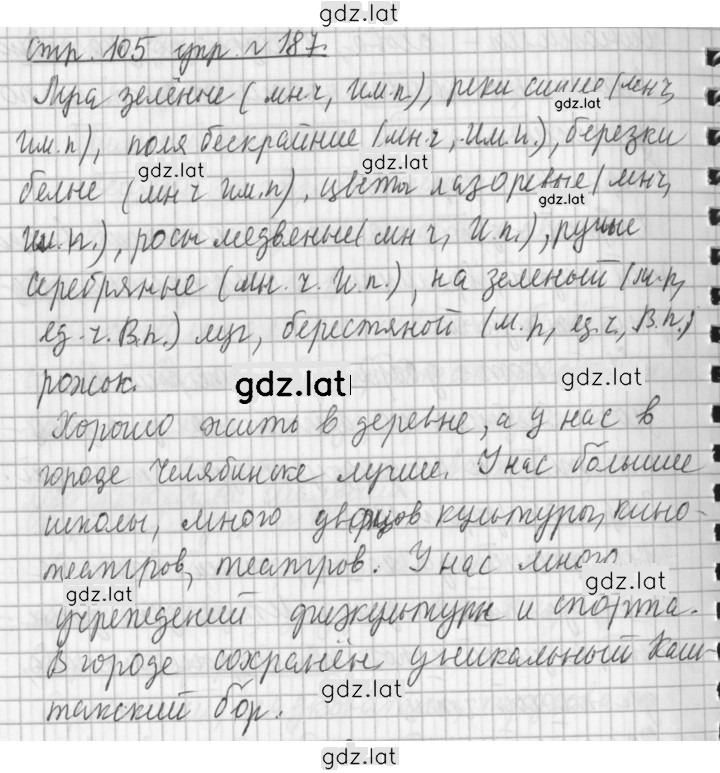 gdz.lat
стр. 105 упр. № 187.
Мра зелёные (мн.ч, им.п), реки синие (мн ч,
gdz.lat
им.п), поля бескрайние (мн.ч, им.п.), березки
gdz.lat gdz.lat
белые (мн ч им.п), цветы лазоревые (мн ч,
gdz.lat
им. п.), росы медвеные (мн ч, И.п.), ручьи
серебряные (мн. ч. И.п.), на зеленый (м.р,
ед. ч. В.п.) луг, берестяной (м. р, ед. ч, В.п.)
рожок.
gdz.lat gdz.lat
Хорошо жить в деревне, а у нас в
городе Челябинске лучше. У нас большие
школы, много дворцов культуры, кино-
театров, театров. У нас много
gdz.lat gdz.lat
учреждений физкультуры и спорта.
В городе сохранён уникальный Каш-
gdz.lat
такский бор.
gdz.lat